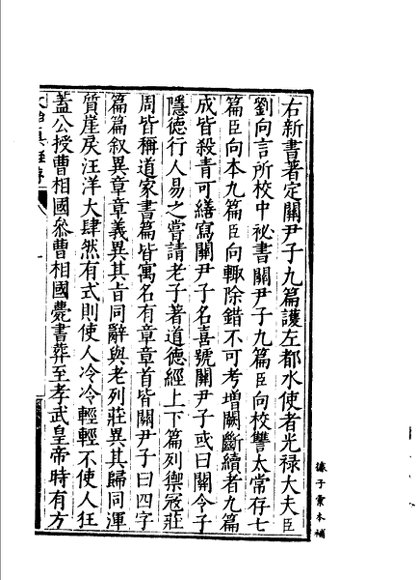 右新書著定關尹子九篇護左都水使者光禄大夫臣
劉向言所校中祕書關尹子九篇臣向校讐太常存七
篇臣向本九篇臣向輙除錯不可考增闕斷續者九篇
成皆殺青可繕寫關尹子名喜號關尹子或曰關令子
隱德行人易之嘗請老子著道德經上下篇列禦冦莊
周皆稱道家書篇皆寓名有章章首皆關尹子曰四字
篇篇叙異章章義異其旨同辭與老列莊異其歸同渾
質崖戾汪洋大肆然有式則使人冷冷輕輕不使人狂
蓋公授曹相國叅曹相國薨書葬至孝武皇帝時有方
據子彙本補